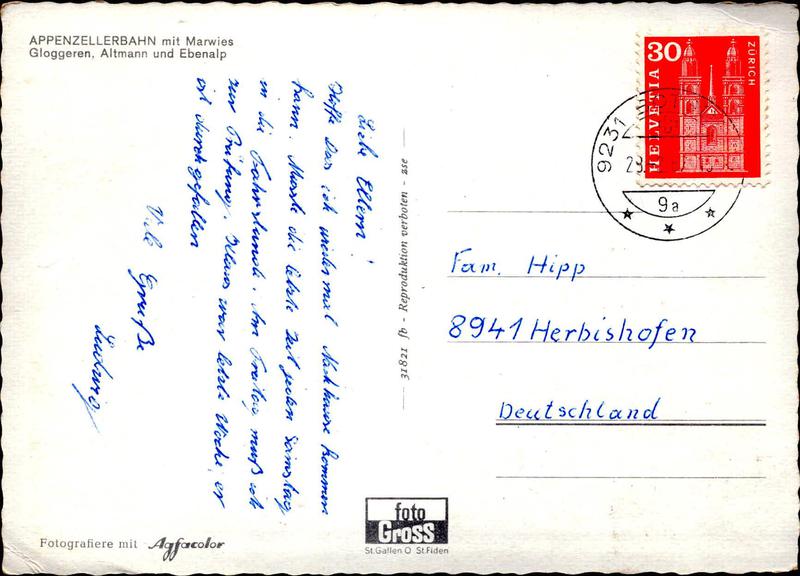 APPENZELLERBAHN mit Marwies
Gloggeren, Altmann und Ebenalp
Liebe Eltern!
Hoffe das ich wieder mal Nachhause kommen
kann. Musste die letzte Zeit jeden Samstag
in die Fahrstunde. Am Freitag muß ich
zur Prüfung. war letzte Woche, er
ist durchgefallen
Viele Grüße
Ludwig
31821 fb - Reproduktion verboten - zse
30
HELVETIA
ZÜRICH
9231
9a
Fam. Hipp
8941 Herbishofen
Deutschland
Fotografiere mit Agfacolor
foto
Gross
St.Gallen O St.Fiden